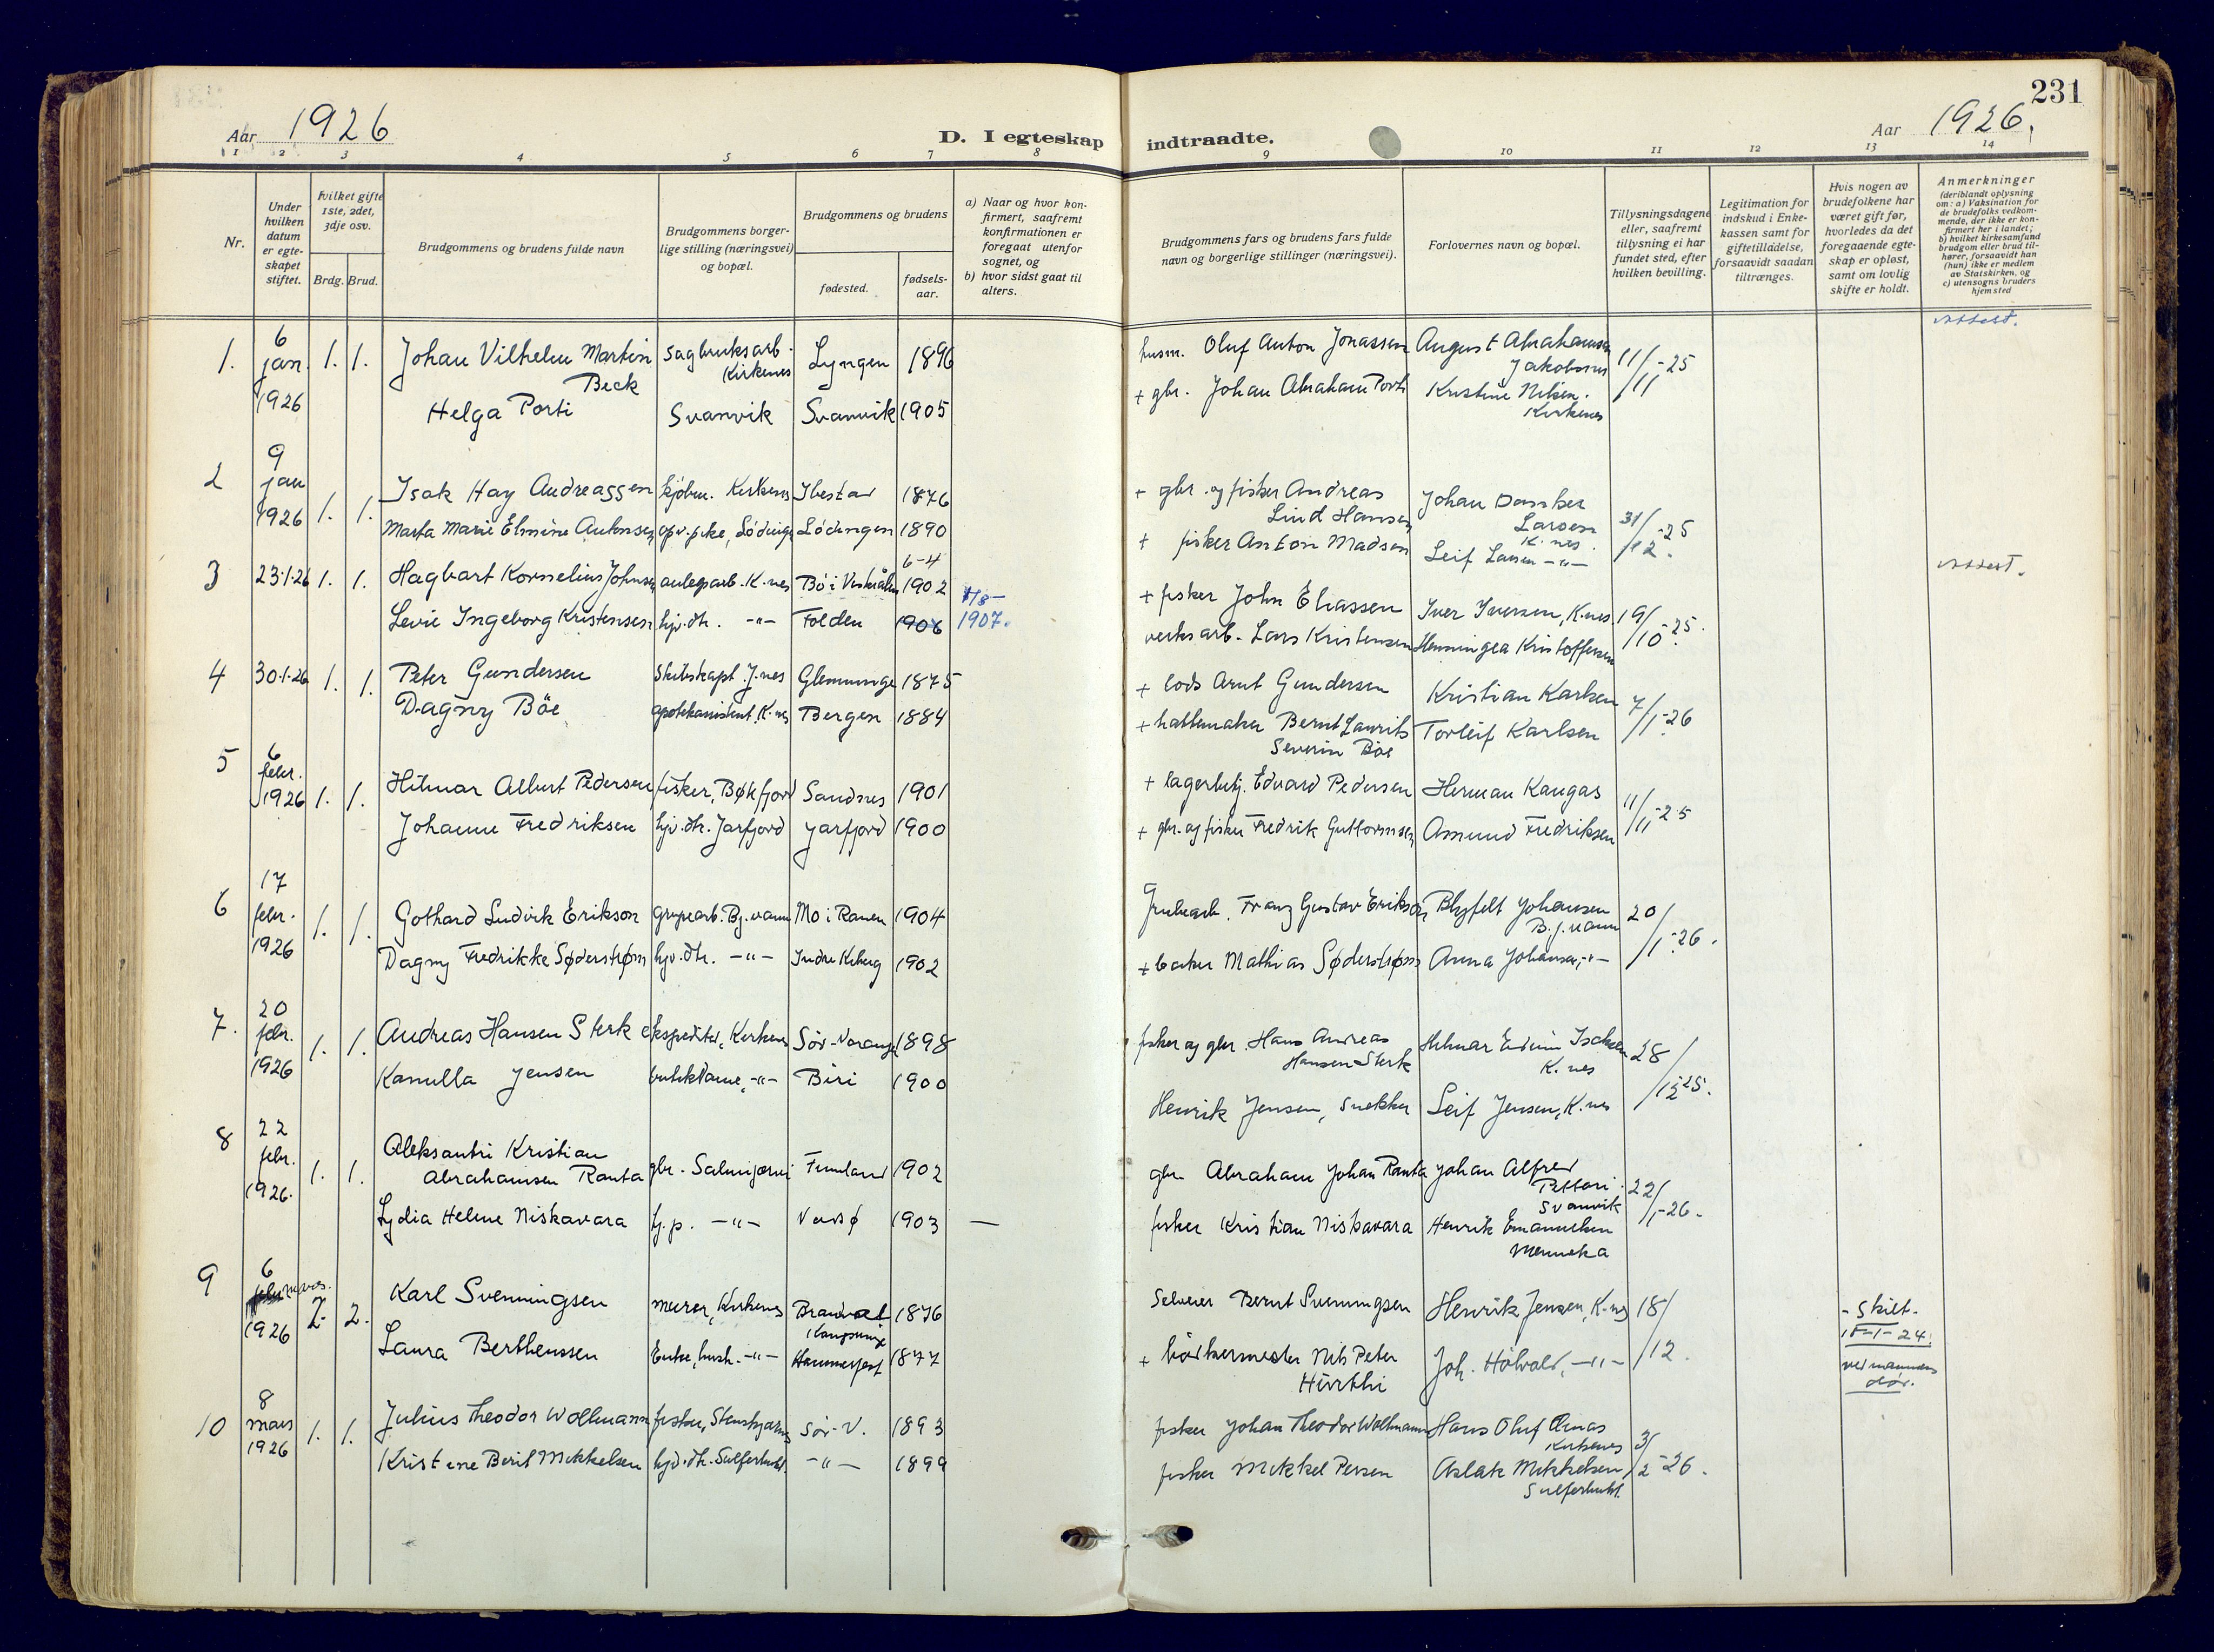 231
Aar 1926
D. I egteskap indtraadte.
Aar 1926.
1 2 3 4 5 6 7 8 9 10 11 12 13 14
Nr.
Under hvilken datum er egteskapet stiftet.
hvilket gifte 1ste, 2det, 3dje osv.
Brdg. Brud.
Brudgommens og brudens fulde navn
Brudgommens borgerlige stilling (næringsvei) og bopæl.
Brudgommens og brudens
fødested.
fødselsaar.
a) Naar og hvor konfirmert, saafremt konfirmationen er foregaat utenfor sognet, og
b) hvor sidst gaat til alters.
Brudgommens fars og brudens fars fulde navn og borgerlige stillinger (næringsvei).
Forlovernes navn og bopæl.
Tillysningsdagene eller, saafremt tillysning ei har fundet sted, efter hvilken bevilling.
Legitimation for indskud i Enkekassen samt for giftetilladelse, forsaavidt saadan tiltrænges.
Hvis nogen av brudefolkene har været gift før, hvorledes da det foregaaende egteskap er opløst, samt om lovlig skifte er holdt.
Anmerkninger
(deriblandt oplysning om: a) Vaksination for de brudefolks vedkommende, der ikke er konfirmert her i landet; b) hvilket kirkesamfund brudgom eller brud tilhører, forsaavidt han (hun) ikke er medlem av Statskirken, og c) utensogns bruders hjemsted
1. 6 jan. 1926 1. 1. Johan Vilhelm Martin Beck sagbruksarb. Kirkenes Lyngen 1896 husm. Oluf Anton Jonassen August Abrahamsen Jakobsnes 11/11-25 Attest.
Helga Porti Svanvik Svanvik 1905 + gbr. Johan Abraham Porti Kristine Nilsen. Kirkenes
2 9 jan 1926 1. 1. Isak Hay Andreassen kjøbm. Kirkenes Ibestad 1876 + gbr. og fisker Andreas Lind Hansen Johan Larsen K.nes. 31/12-25
Marta Marie Elmine Antonsen opv.pike, Lödingen Lödingen 1890 + fisker Anton Madsen Leif Larsen -"-
3 23-1-26 1. 1. Hagbart Kornelius Johnsen anlegsarb. K.nes Bö i Vesterålen 6-4 1902 + fisker John Eliassen Iver Iversen, K.nes. 19/10-25. Attest.
Levie Ingeborg Kristensen hjv.dtr. -"- Folden 1906 1907. verksarb. Lars Kristensen Henningea Kristoffersen
4 30-1-26 1. 1. Peter Gundersen Skibskapt. J.nes Glemminge 1875 + lods Arnt Gundersen Kristian Karlsen 7/1-26
Dagny Böe apotekassistent. K.nes Bergen 1884 + hattemaker Bernt Laurits Severin Böe Torleif Karlsen
5 6 febr. 1926 1. 1. Hilmar Albert Pedersen fisker, Bøkfjord Sandnes 1901 + lagerbetj. Edvard Pedersen Herman Kangas 11/11-25
Johanne Fredriksen hjv.dtr. Jarfjord Jarfjord 1900 + gbr. og fisker Fredrik Guttormsen Asmund Fredriksen
6 17 febr. 1926 1. 1. Gothard Ludvik Erikson grupearb. Bj.vann Mo i Ranen 1904 Grubearb. Franz Gustav Erikson Blyfelt Johansen Bj.vann 20/1-26.
Dagny Fredrikke Søderstrøm hjv.dtr. -"- Indre Kiberg 1902 + baker Mathias Søderstrøm Anna Johansen, -"-
7. 20 febr. 1926 1. 1. Andreas Hansen Sterk ekspeditør, Kirkenes Sör-Varanger 1898 fisker og gbr. Hans Andreas Hansen Sterk Hilmar Edvin Isaksen K.nes 28/12-25.
Kamilla Jensen butikkdame, -"- Biri 1900 Henrik Jensen, snekker Leif Jensen, K.nes
8 22 febr. 1926. 1. 1. Aleksantri Kristian Abrahamsen Ranta gbr. Salmijærvi Finnland 1902 gbr. Abraham Johan Ranta Johan Alfred Pettari. Svanvik 22/1-26.
Lydia Helene Niskavara hj.p. -"- Vadsø 1903 — fisker Kristian Niskavara Henrik Emanuelsen Mennika
9 6 mars. 1926 2. 2. Karl Svenningsen murer, Kirkenes Brandval Kongsvinge 1876 Selveier Bernt Svenningsen Henrik Jensen, K.nes 18/12. - skilt. 15-1-24.
Laura Berthenssen Enke, hush. -"- Hammerfest 1877 + Nils Peter Joh. Hölvold, -"- ved mannens död.
10 8 mars 1926 1. 1. Julius Theodor Wollmann fisker, Sör-V. 1893 fisker Johan Theodor Wollmann Hans Oluf Kirkenes 3/2-26.
Kristine Beril Mikkelsen hjv.dtr. Sulferbukt. -"- 1899 fisker Mikkel Persen Aslak Mikkelsen, Sulferbukt.